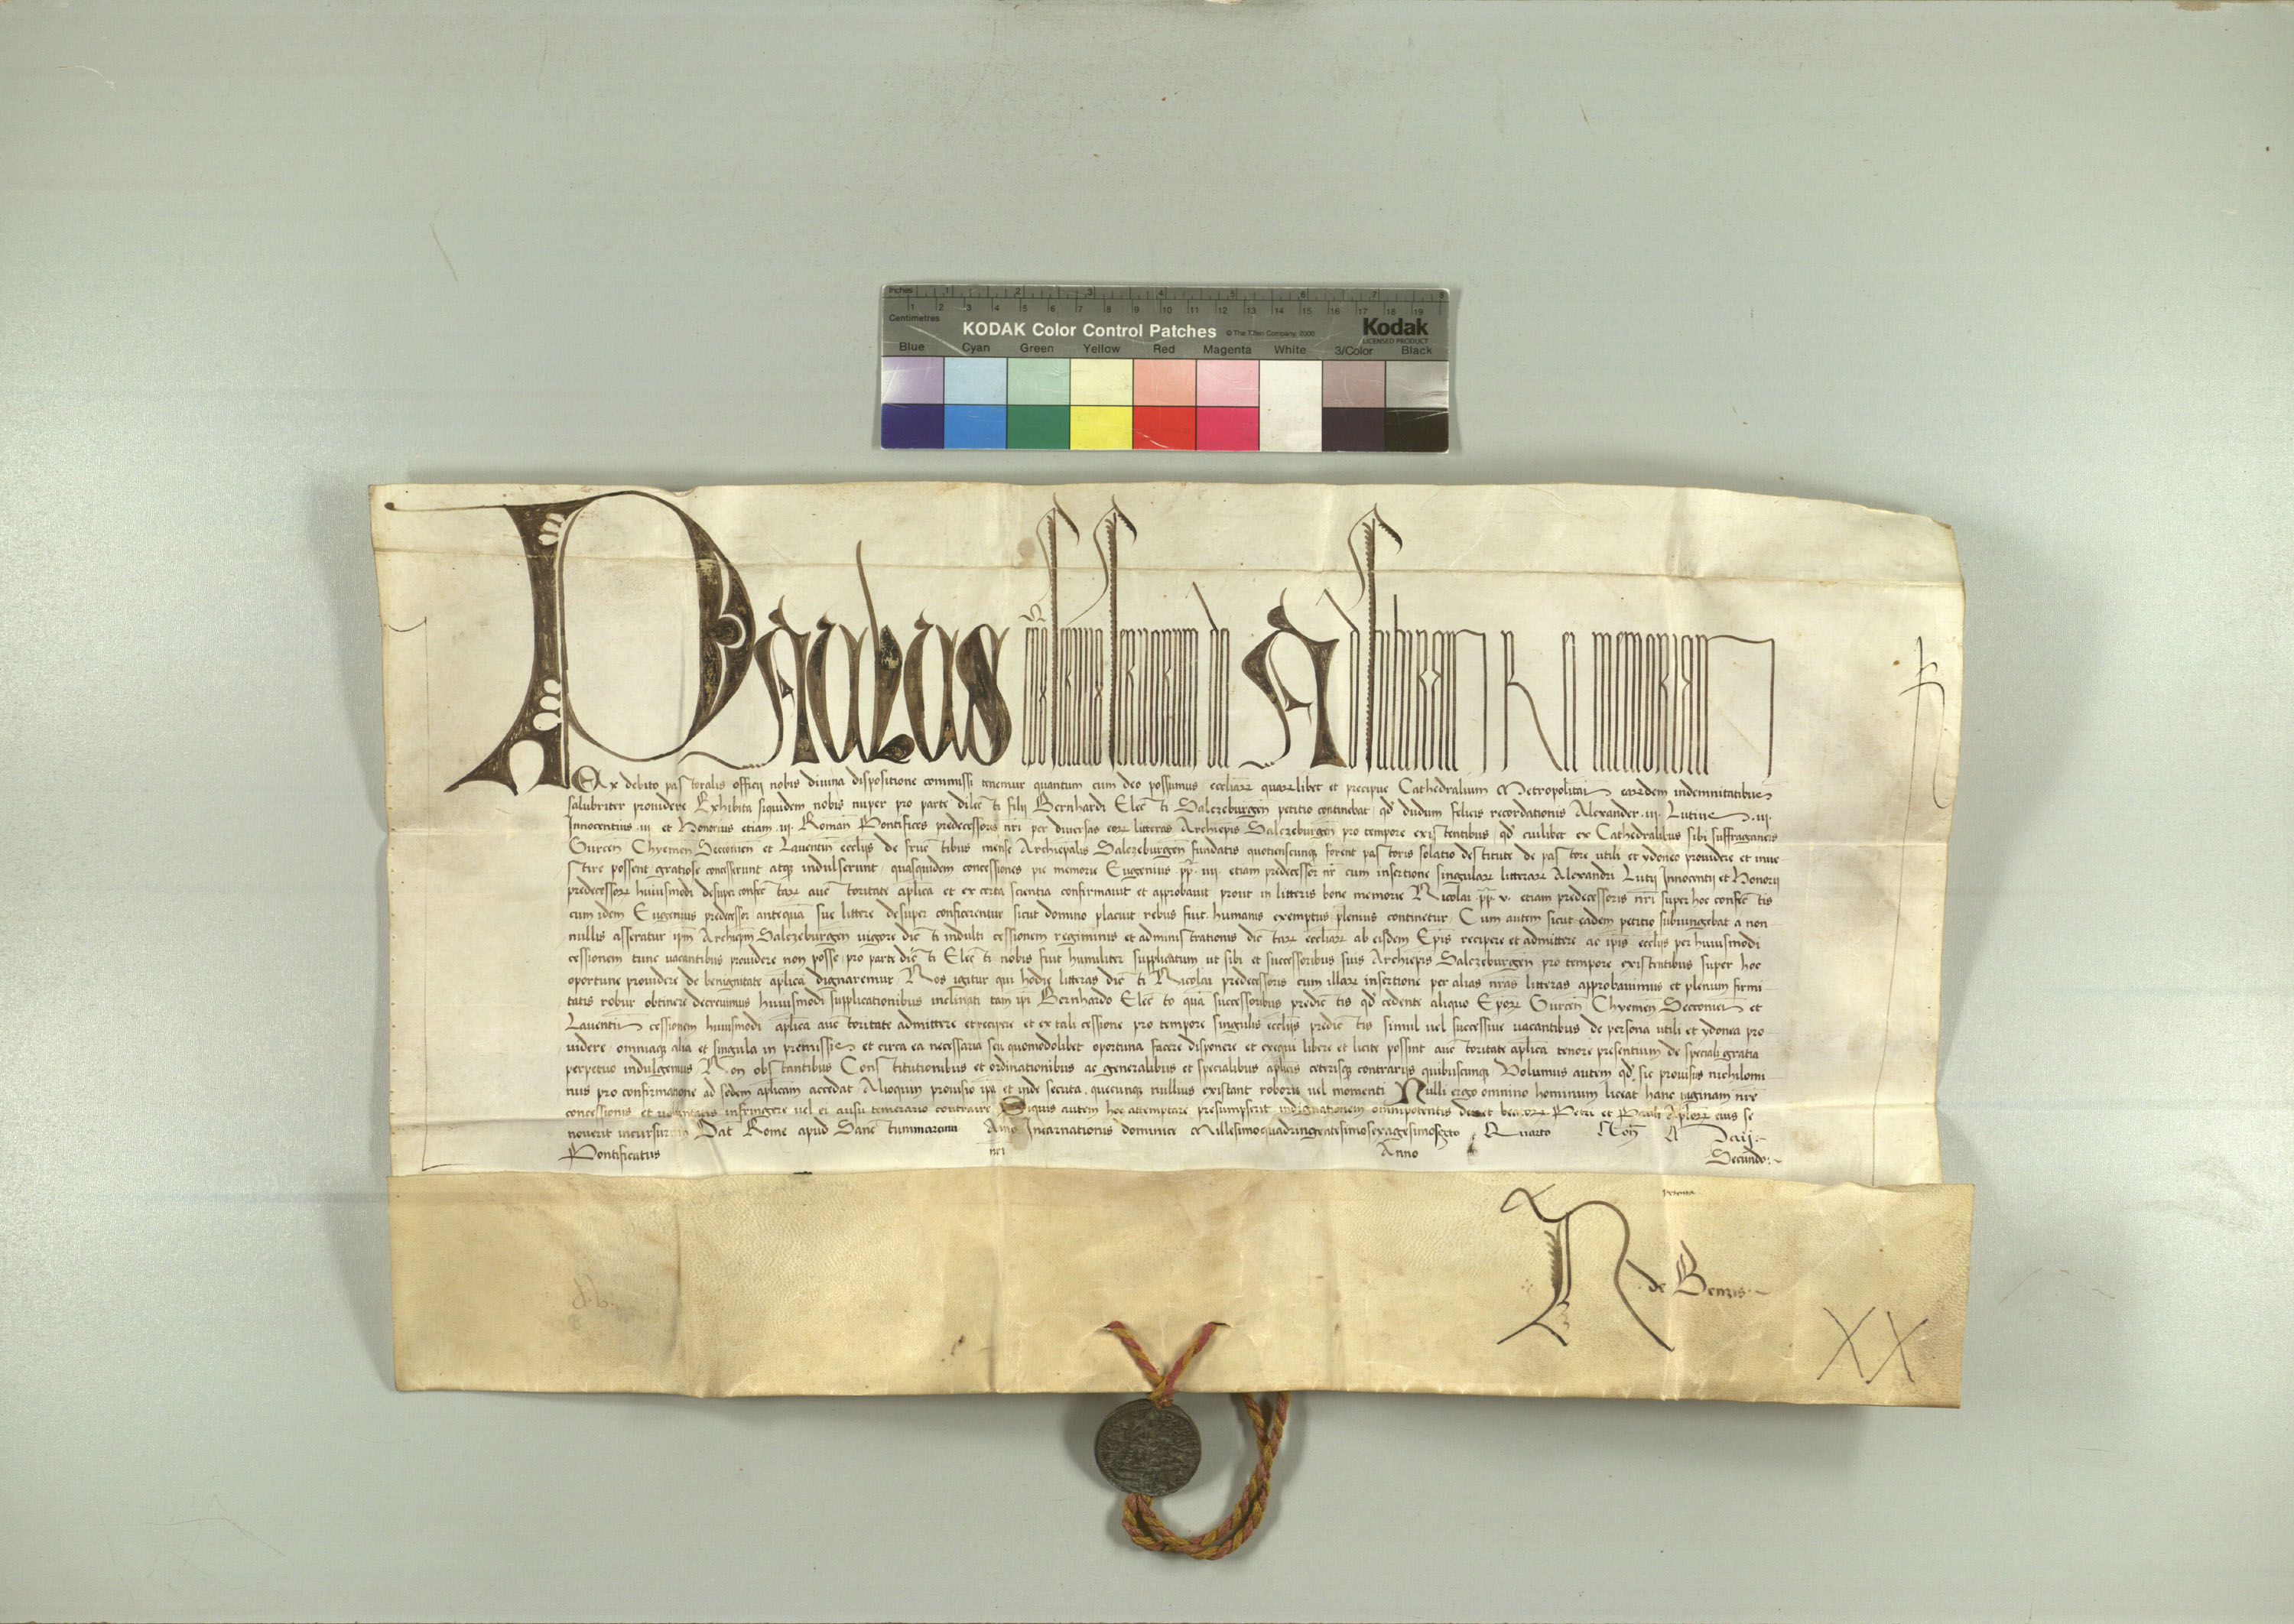 Inches 1 2 3 4 5 6 7 8
1 2 3 4 5 6 7 8 9 10 11 12 13 14 15 16 17 18 19
Centimetres
KODAK Color Control Patches © The Tiffen Company, 2000 Kodak
LICENSED PRODUCT
Blue Cyan Green Yellow Red Magenta White 3/Color Black
Paulus ep̄s seruus seruorum dei Ad futuram Rei memoriam
Ex debito pastoralis officij nobis diuina dispositione commissi tenemur quantum cum deo possumus eccliaꝝ quarumlibet et precipue Cathedralium Metropolitañ earūdem indemnitatibus
salubriter prouidere Exhibita siquidem nobis nuper pro parte dilecti filij Bernhardi Electi Salczeburgeñ petitio continebat qđ dudum felicis recordationis Alexander .iij. Lutius .iij.
Innocentius .iij. et Honorius etiam .iij. Romañ Pontifices predecessores nr̄i per diuersas eoꝝ litteras Archiep̄is Salczeburgeñ pro tempore existentibus qđ cuilibet ex Cathedralibus sibi suffraganeis
Gurceñ Chyemeñ Secconieñ et Lauentiñ eccl̄ijs de fructibus mense Archiep̄alis Salczeburgeñ fundatis quotienscunqꝫ forent pastoris solatio destitute de pastore utili et ydoneo prouidere et inue
stire possent gratiose concesserunt atqꝫ indulserunt, quasquidem concessiones pie memorie Eugenius pp̄. iiij. etiam predecessor nr̄ cum insertione singulaꝝ litteraꝝ Alexandri Lutij Innocentij et Honorij
predecessoꝝ huiusmodi desuper confectaꝝ auctoritate ap̄lica et ex certa scientia confirmauit et approbauit prout in litteris bone memorie Nicolai pp̄. v. etiam predecessoris nr̄i super hoc confectis
cum idem Eugenius predecessor antequā sue littere desuper conficerentur sicut domino placuit rebus fuit humanis exemptus plenius continetur, Cum autem sicut eadem petitio subiungebat a non
nullis asseratur ip̄m Archiep̄m Salczeburgeñ uigore dicti indulti cessionem regiminis et administrationis dictaꝝ eccliaꝝ ab eisdem Ep̄is recipere et admittere ac ip̄is eccl̄ijs per huiusmodi
cessionem tunc uacantibus prouidere non posse, pro parte dicti Electi nobis fuit humiliter supplicatum ut sibi et successoribus suis Archiep̄is Salczeburgeñ pro tempore existentibus super hoc
oportune prouidere de benignitate ap̄lica dignaremur Nos igitur qui hodie litteras dicti Nicolai predecessoris cum illaꝝ insertione per alias nr̄as litteras approbauimus et plenum firmi
tatis robur obtinere decreuimus huiusmodi supplicationibus inclinati tam ip̄i Bernhardo Electo quā successoribus predictis qđ cedente aliquo Ep̄oꝝ Gurceñ Chyemeñ Secconieñ et
Lauentiñ cessionem huiusmodi ap̄lica auctoritate admittere et recipere et ex tali cessione pro tempore singulis eccl̄ijs predictis simul uel successiue uacantibus de persona utili et ydonea pro
uidere, omniaqꝫ alia et singula in premissis et circa ea necessaria seu quomodolibet oportuna facere disponere et exequi libere et licite possint auctoritate ap̄lica tenore presentium de speciali gratia
perpetuo indulgemus Non obstantibus Constitutionibus et ordinationibus ac generalibus et specialibus ap̄licis ceterisqꝫ contrarijs quibuscunqꝫ Volumus autem qđ sic prouisus nichilomi
nus pro confirmatione ad sedem ap̄licam accedat, Alioquin prouisio ip̄a et inde secuta quecunqꝫ nullius existant roboris uel momenti Nulli ergo omnino hominum liceat hanc paginam nr̄e
concessionis et uoluntatis infringere uel ei ausu temerario contraire Siquis autem hoc attemptare presumpserit indignationem omnipotentis dei et beatoꝝ Petri et Pauli Ap̄loꝝ eius se
nouerit incursurum Dat̄ Rome apud Sanctummarcum Anno Incarnationis dominice Millesimoquadringentesimosexagesimosexto Quarto Noñ Maij
Pontificatus nr̄i Anno Secundo
N de Benzis
XX